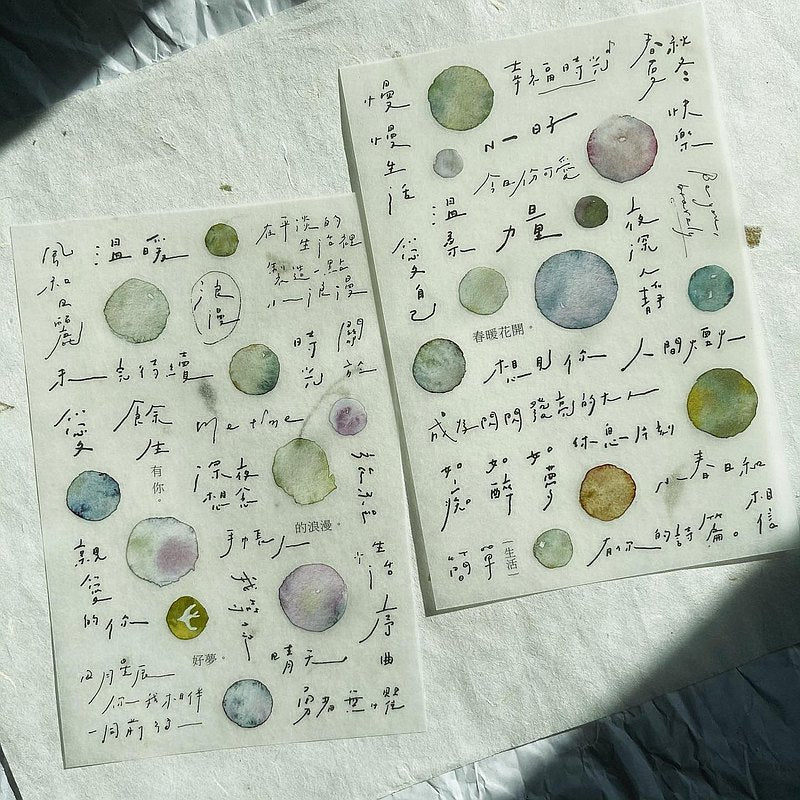 風和日麗
溫暖
在平淡的
生活裡
製造一點
小浪漫
浪漫
未完待續
時光
關於
愛
餘生
有你。
me time
深夜
想念
的浪漫。
手帳人
親愛的你
生活序曲
好夢。
晴天
日月星辰
你我相伴
一同前行
勇者無懼
慢慢生活
幸福時光
春夏秋冬
快樂
小日子
今日份可愛
Be your,
bravely
溫柔
力量
夜深人靜
愛自己
春暖花開。
想見你
人間煙火
成為閃閃發亮的大人
休息一片刻
如痴
如醉
如夢
小春日和
相信
簡單
生活
有你的詩篇。